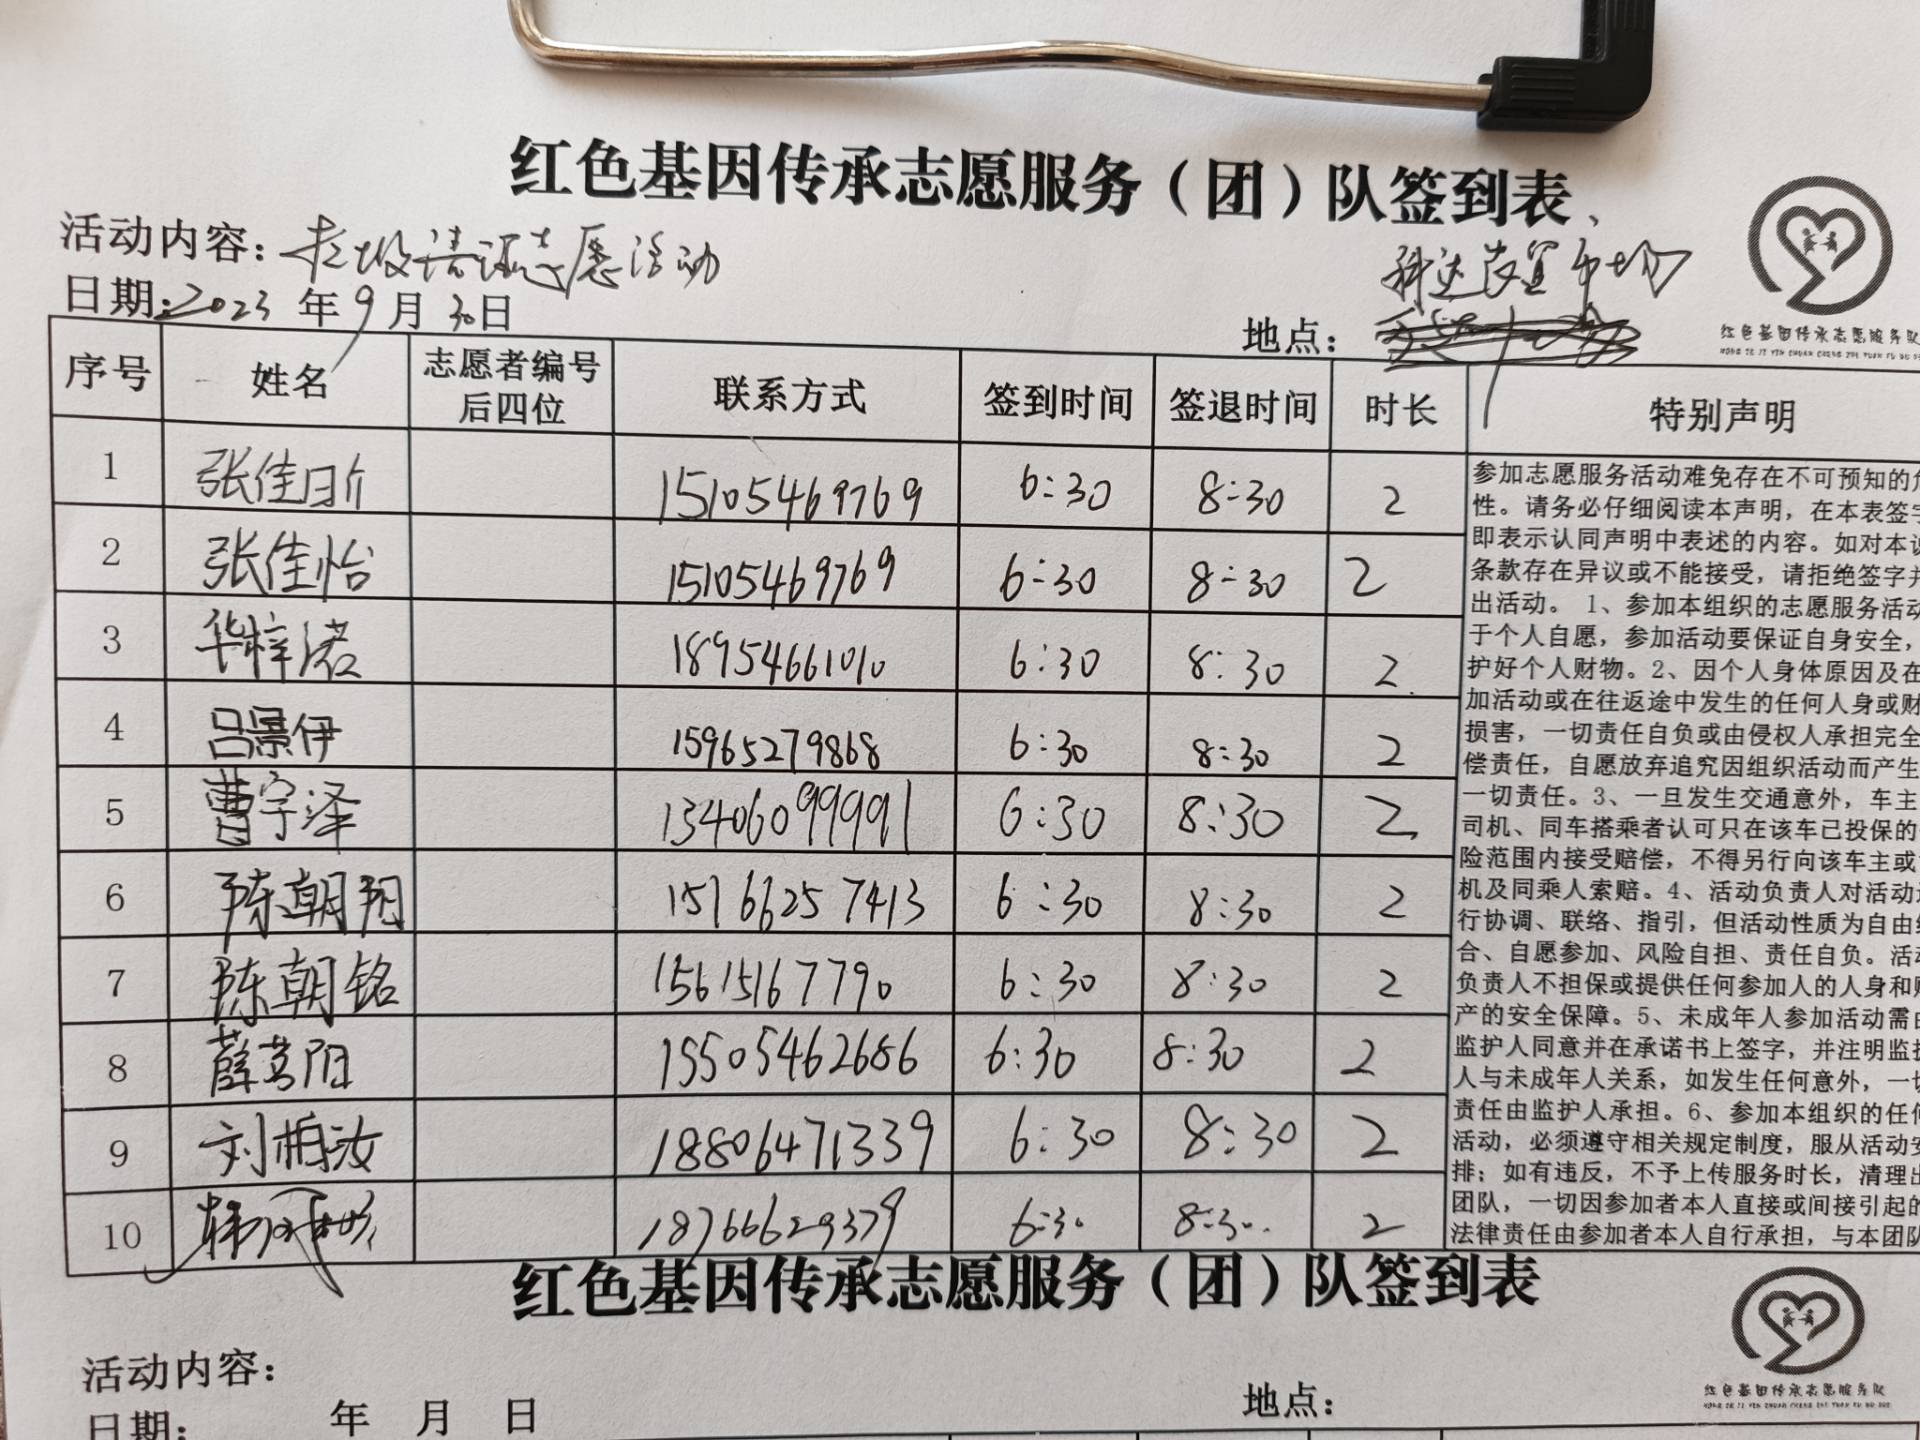 红色基因传承志愿服务（团）队签到表
活动内容：垃圾清理志愿活动
科达 市场
日期：2023年9月30日
地点：
红色基因传承志愿服务队
序号 姓名 志愿者编号后四位 联系方式 签到时间 签退时间 时长 特别声明
1 张佳 15105469769 6:30 8:30 2
2 张佳怡 15105469769 6:30 8:30 2
3 华梓诺 18954661010 6:30 8:30 2
4 吕景伊 15965279868 6:30 8:30 2
5 曹宇泽 13406099991 6:30 8:30 2
6 陈朝阳 15166257413 6:30 8:30 2
7 陈朝铭 15615167790 6:30 8:30 2
8 薛 阳 15505462686 6:30 8:30 2
9 刘柏汝 18806471339 6:30 8:30 2
10 韩 18766629379 6:30 8:30 2
参加志愿服务活动难免存在不可预知的
性。请务必仔细阅读本声明，在本表签字
即表示认同声明中表述的内容。如对本
条款存在异议或不能接受，请拒绝签字并
出活动。 1、参加本组织的志愿服务活动
于个人自愿，参加活动要保证自身安全，
护好个人财物。2、因个人身体原因及在
加活动或在往返途中发生的任何人身或财
损害，一切责任自负或由侵权人承担完全
偿责任，自愿放弃追究因组织活动而产生
一切责任。3、一旦发生交通意外，车主
司机、同车搭乘者认可只在该车已投保的
险范围内接受赔偿，不得另行向该车主或
机及同乘人索赔。4、活动负责人对活动
行协调、联络、指引，但活动性质为自由
合、自愿参加、风险自担、责任自负。活动
负责人不担保或提供任何参加人的人身和
产的安全保障。5、未成年人参加活动需由
监护人同意并在承诺书上签字，并注明监护
人与未成年人关系，如发生任何意外，一切
责任由监护人承担。6、参加本组织的任何
活动，必须遵守相关规定制度，服从活动安
排；如有违反，不予上传服务时长，清理出
团队，一切因参加者本人直接或间接引起的
法律责任由参加者本人自行承担，与本团队
红色基因传承志愿服务（团）队签到表
活动内容：
红色基因传承志愿服务队
日期： 年 月 日
地点：